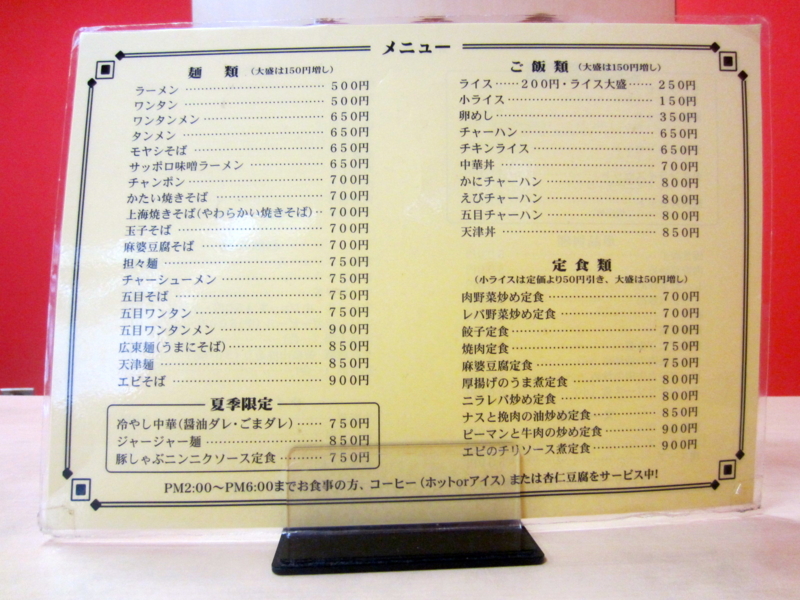 メニュー
麺 類 (大盛は150円増し)
ラーメン ………… 500円
ワンタン ………… 500円
ワンタンメン ………… 650円
タンメン ………… 650円
モヤシそば ………… 650円
サッポロ味噌ラーメン ………… 650円
チャンポン ………… 700円
かたい焼きそば ………… 700円
上海焼きそば(やわらかい焼きそば)‥ 700円
玉子そば ………… 700円
麻婆豆腐そば ………… 700円
担々麺 ………… 750円
チャーシューメン ………… 750円
五目そば ………… 750円
五目ワンタン ………… 750円
五目ワンタンメン ………… 900円
広東麺(うまにそば) ………… 850円
天津麺 ………… 850円
エビそば ………… 900円
夏季限定
冷やし中華(醤油ダレ・ごまダレ)…… 750円
ジャージャー麺 ………… 850円
豚しゃぶニンニクソース定食 ………… 750円
ご 飯 類 (大盛は150円増し)
ライス……200円・ライス大盛…… 250円
小ライス ………… 150円
卵めし ………… 350円
チャーハン ………… 650円
チキンライス ………… 650円
中華丼 ………… 700円
かにチャーハン ………… 800円
えびチャーハン ………… 800円
五目チャーハン ………… 800円
天津丼 ………… 850円
定 食 類
(小ライスは定価より50円引き、大盛は50円増し)
肉野菜炒め定食 ………… 700円
レバ野菜炒め定食 ………… 700円
餃子定食 ………… 700円
焼肉定食 ………… 750円
麻婆豆腐定食 ………… 750円
厚揚げのうま煮定食 ………… 800円
ニラレバ炒め定食 ………… 800円
ナスと挽肉の油炒め定食 ………… 850円
ピーマンと牛肉の炒め定食 ………… 900円
エビのチリソース煮定食 ………… 900円
PM2:00〜PM6:00までお食事の方、コーヒー(ホットorアイス)または杏仁豆腐をサービス中!